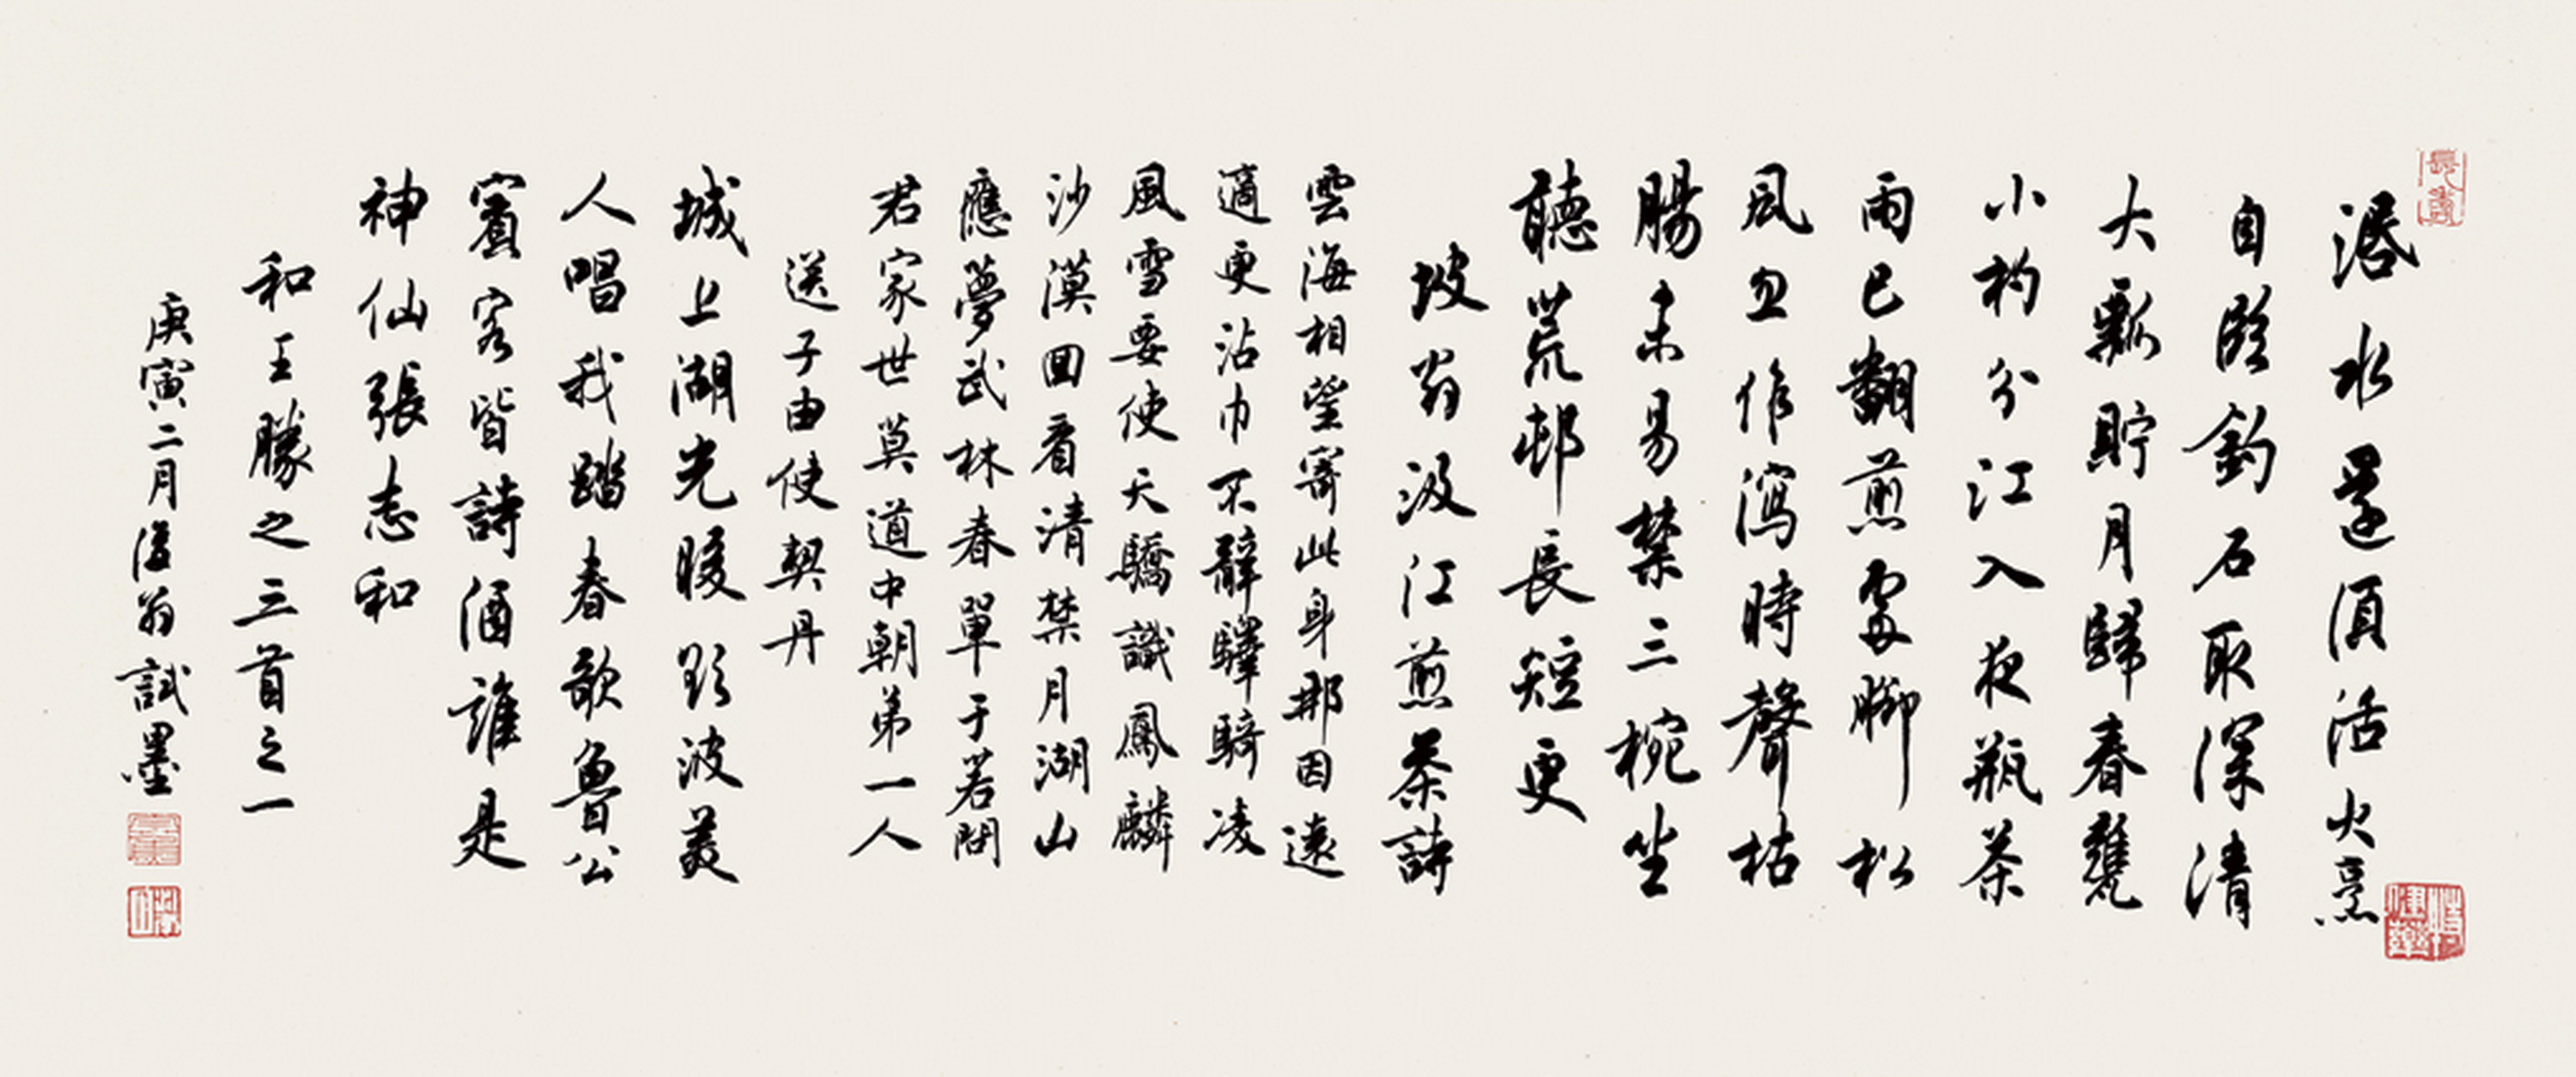 活水還須活火烹
自臨釣石取深清
大瓢貯月歸春甕
小杓分江入夜瓶茶
雨已翻煎處腳松
風忽作瀉時聲枯
腸未易禁三椀坐
聽荒邨長短更
坡翁汲江煎茶詩
雲海相望寄此身那因遠
適更沾巾不辭驛騎凌
風雪要使天驕識鳳麟
沙漠回看清禁月湖山
應夢武林春單于若問
君家世莫道中朝弟一人
送子由使契丹
城上湖光暖欲波美
人唱我踏春歌魯公
賓客皆詩酒誰是
神仙張志和
和王勝之三首之一
庚寅二月翁試墨